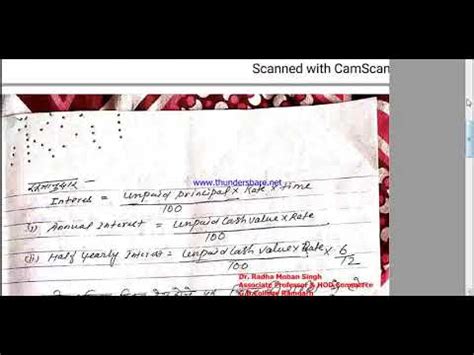 Scanned with CamScan
www.thundersbare.net
Interes = unpaid principal x Rate x time
100
i) Annual Interest = unpaid Cash value x Rate
100
(ii) Half yearly Interest = unpaid Cash value x Rate x 6
100 12
Dr. Radha Mohan Singh
Associate Professor & HOD Commerce